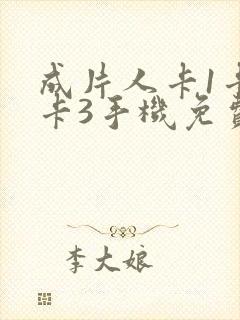 成片人卡1卡
卡3手機免費
李大娘